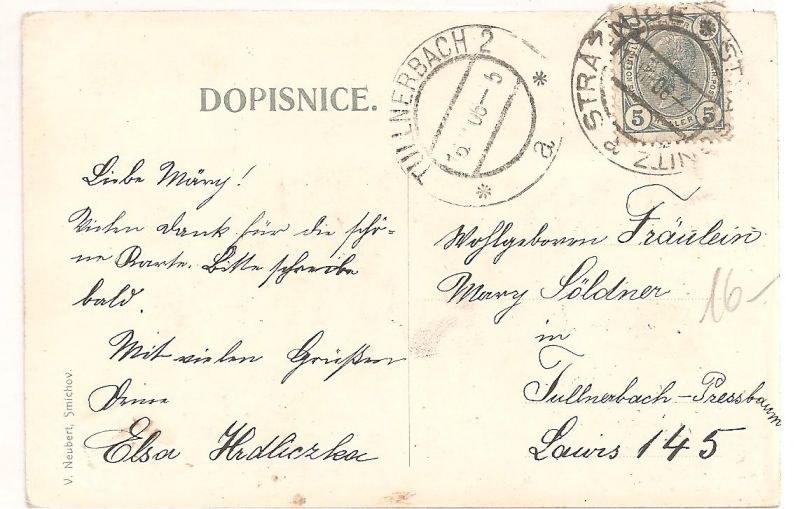 DOPISNICE.
TULLNERBACH 2
* a *
06-5
STRAŠ
5 5
Liebe Märy!
Vielen Dank für die schö-
ne Karte. Bitte schreibe
bald.
Mit vielen Grüßen
Deine
Elsa Hrdliczka
Wohlgeboren Fräulein
Mary Söldner
in
Tullnerbach-Pressbaum
Lawis 145
16-
V. Neubert, Smichov.